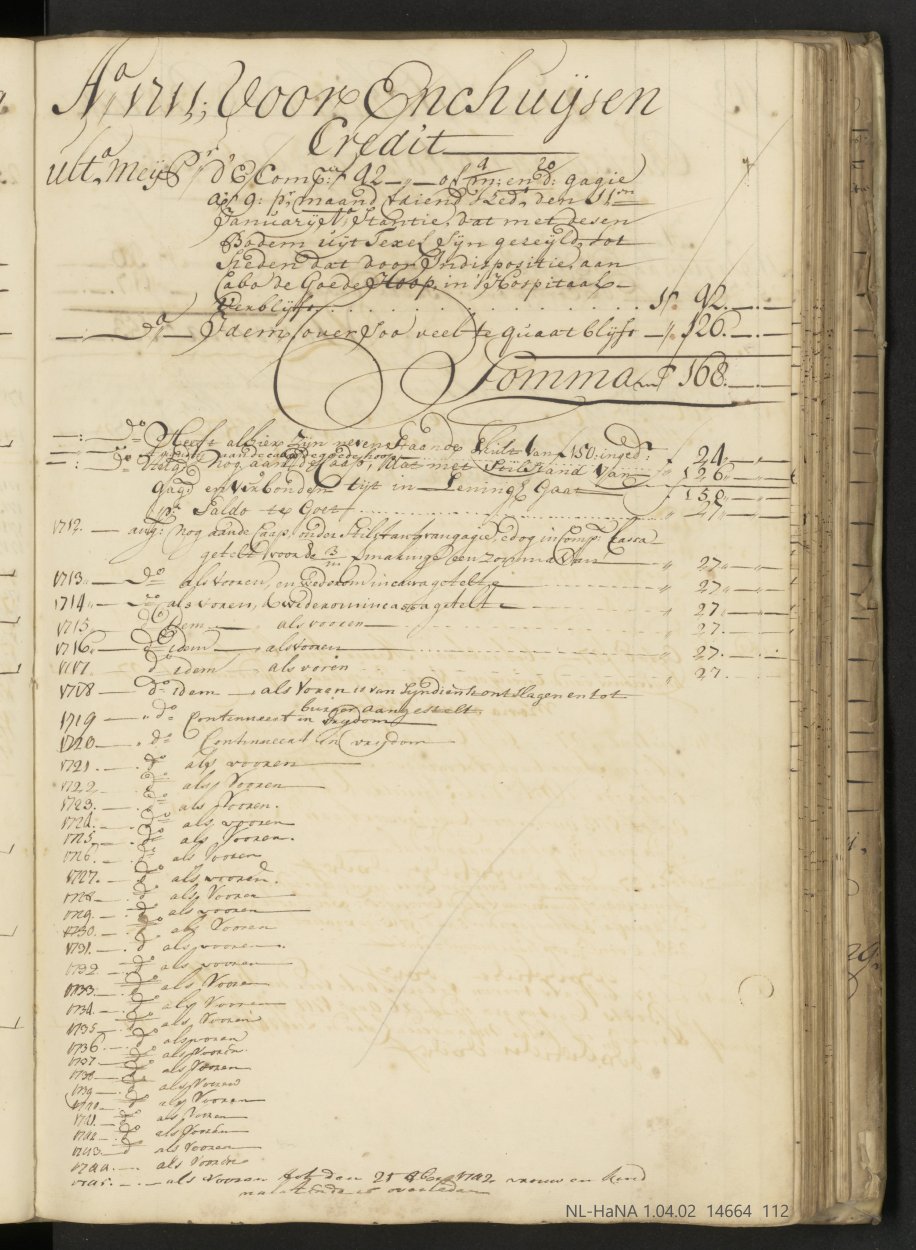 A.o 1711; Voor Enchuijsen
Credit
ult.a meij P.r d'E Comp.e ƒ 42 — of 4/m: en 20/d: gagie
a ƒ 9: p.r maand
Januarij A.o Stantie, dat met desen
Bodem uijt Texel sijn geseyld, tot
heden dat door Indispositie, aan
Cabo de Goede Hoop, in 't Hospitaal
Verblijft . . . ƒ 42.—.—
— d.o — Idem, over soo veel te quaat blijft — „ 126.—.—
Somma ƒ 168.—.—
d.o Heeft alhier zijn nevenstaande schult van ƒ 150: inged: ƒ 24.—
d.o nog aan de Caap, dat met Stilstand van „ 126.—
gag: en verbonden tijt in Lening Gaat ƒ 150.—
p.r Saldo te Goet „ 27.—
1712. — aug: nog aande Caap, onder Stilstant van gagie, edog in Comp: Cassa
getelt voor de 3/m making een zomma van „ 27.—
1713. — d.o als vooren, en wederom in cassa getelt „ 27.—
1714. — d.o als voren, & wederom in cassa getelt „ 27.—
1715. d.o Idem — als vooren „ 27.—
1716. — d.o idem — als vooren „ 27.—
1717 d.o idem — als voren „ 27.—
1718 — d.o idem — als voren is van sijn dienst ontslagen en tot
burger aangestelt.
1719 — „ d.o Continueert in vrijdom
1720 — „ d.o Continueert in vrijdom
1721. — d.o als vooren
1722. — d.o als Vooren
1723. — d.o als Vooren.
1724. — d.o als vooren
1725. — d.o als Vooren.
1726. — d.o als Vooren
1727. — d.o als vooren.
1728. — d.o als Vooren
1729. — d.o als vooren
1730. — d.o als Vooren
1731. — d.o als vooren.
1732. — d.o als vooren
1733. — d.o als Vooren
1734. — d.o als Vooren
1735 — d.o als Vooren
1736 — d.o als vooren
1737 — d.o als Vooren
1738 — d.o als Vooren
1739 — d.o als Vooren
1740 — d.o als Vooren
1741. — d.o als Vooren
1742 — d.o als Vooren
1743 — d.o als Vooren
1744. — als Vooren
1745. — als vooren tot den 25 vrouw en kind
overleden
NL-HaNA 1.04.02 14664 112